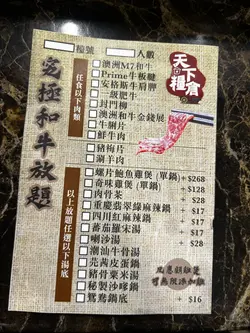 檯號 人數
天下糧倉
究極和牛放題
任食以下肉類
澳洲M7和牛
Prime牛板腱
安格斯牛肩胛
一級肥牛
封門柳
澳洲和牛金錢展
牛脷片
鮮牛肉
豬梅片
涮羊肉
以上放題任選以下湯底
螺片鮑魚雞煲 (單鍋) + $268
奇味雞煲 (單鍋) + $128
肉骨茶 + $28
重慶翡翠椒麻辣鍋 + $17
四川紅麻辣鍋 + $17
蕃茄羅宋湯 + $17
喇沙湯 + $28
潮汕牛骨湯
芫茜皮蛋鍋
豬骨粟米湯
秘製沙嗲鍋
鴛鴦鍋底 + $16